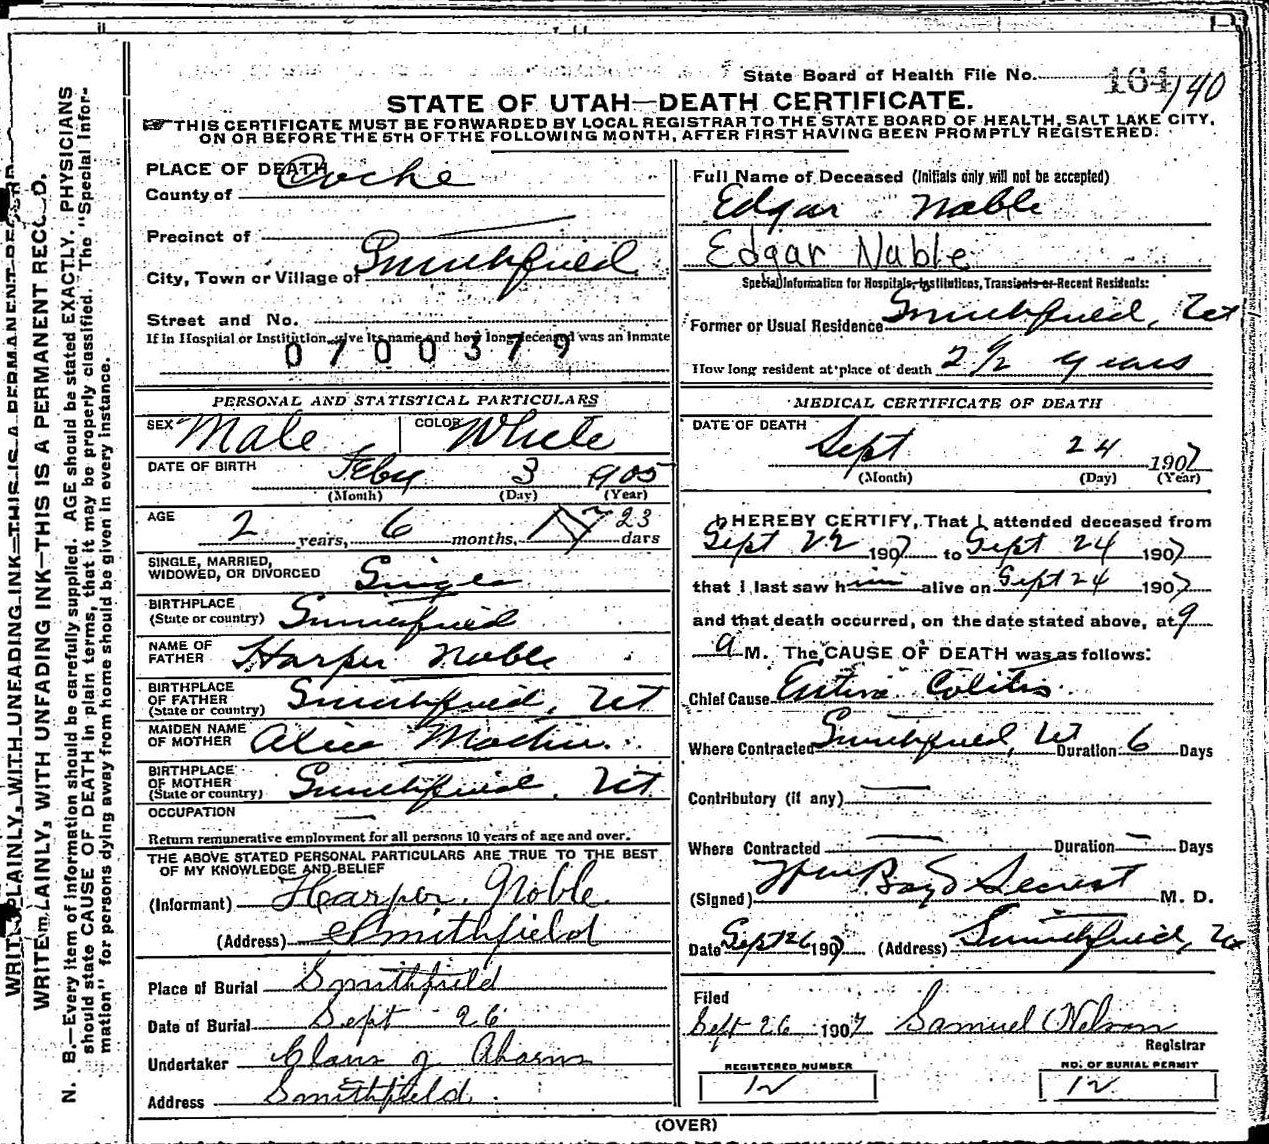 State Board of Health File No. 164 140
STATE OF UTAH—DEATH CERTIFICATE.
THIS CERTIFICATE MUST BE FORWARDED BY LOCAL REGISTRAR TO THE STATE BOARD OF HEALTH, SALT LAKE CITY,
ON OR BEFORE THE 5TH OF THE FOLLOWING MONTH, AFTER FIRST HAVING BEEN PROMPTLY REGISTERED.
PLACE OF DEATH
County of Cache
Precinct of
City, Town or Village of Smithfield
Street and No.
If in Hospital or Institution, give its name and how long deceased was an inmate
0700379
PERSONAL AND STATISTICAL PARTICULARS
SEX Male COLOR White
DATE OF BIRTH Feby 3 1905
(Month) (Day) (Year)
AGE 2 years, 6 months, 23 days
SINGLE, MARRIED,
WIDOWED, OR DIVORCED Single
BIRTHPLACE
(State or country) Smithfield
NAME OF
FATHER Harper Noble
BIRTHPLACE
OF FATHER
(State or country) Smithfield, Ut
MAIDEN NAME
OF MOTHER Alice
BIRTHPLACE
OF MOTHER
(State or country) Smithfield, Ut
OCCUPATION —
Return remunerative employment for all persons 10 years of age and over.
THE ABOVE STATED PERSONAL PARTICULARS ARE TRUE TO THE BEST
OF MY KNOWLEDGE AND BELIEF
(Informant) Harper Noble
(Address) Smithfield
Place of Burial Smithfield
Date of Burial Sept 26
Undertaker Claus J Ahorns
Address Smithfield.
Full Name of Deceased (Initials only will not be accepted)
Edgar Noble
Edgar Nable
Special Information for Hospitals, Institutions, Transients or Recent Residents:
Former or Usual Residence Smithfield, Ut
How long resident at place of death 2 1/2 years
MEDICAL CERTIFICATE OF DEATH
DATE OF DEATH
Sept 24 1907
(Month) (Day) (Year)
I HEREBY CERTIFY, That I attended deceased from
Sept 22 1907 to Sept 24 1907
that I last saw him alive on Sept 24 1907
and that death occurred, on the date stated above, at 9
a M. The CAUSE OF DEATH was as follows:
Chief Cause Colitis
Where Contracted Smithfield, Ut Duration 6 Days
Contributory (if any) —
Where Contracted — Duration — Days
(Signed) Wm Boyd Secrist M. D.
Date Sept 26 1907 (Address) Smithfield, Ut
Filed
Sept 26 1907 Samuel Nelson
Registrar
REGISTERED NUMBER
12
NO. OF BURIAL PERMIT
12
(OVER)
WRITE PLAINLY, WITH UNFADING INK—THIS IS A PERMANENT RECORD
WRITE PLAINLY, WITH UNFADING INK—THIS IS A PERMANENT RECORD.
N. B.—Every item of information should be carefully supplied. AGE should be stated EXACTLY. PHYSICIANS
should state CAUSE OF DEATH in plain terms, that it may be properly classified. The "Special Infor-
mation" for persons dying away from home should be given in every instance.